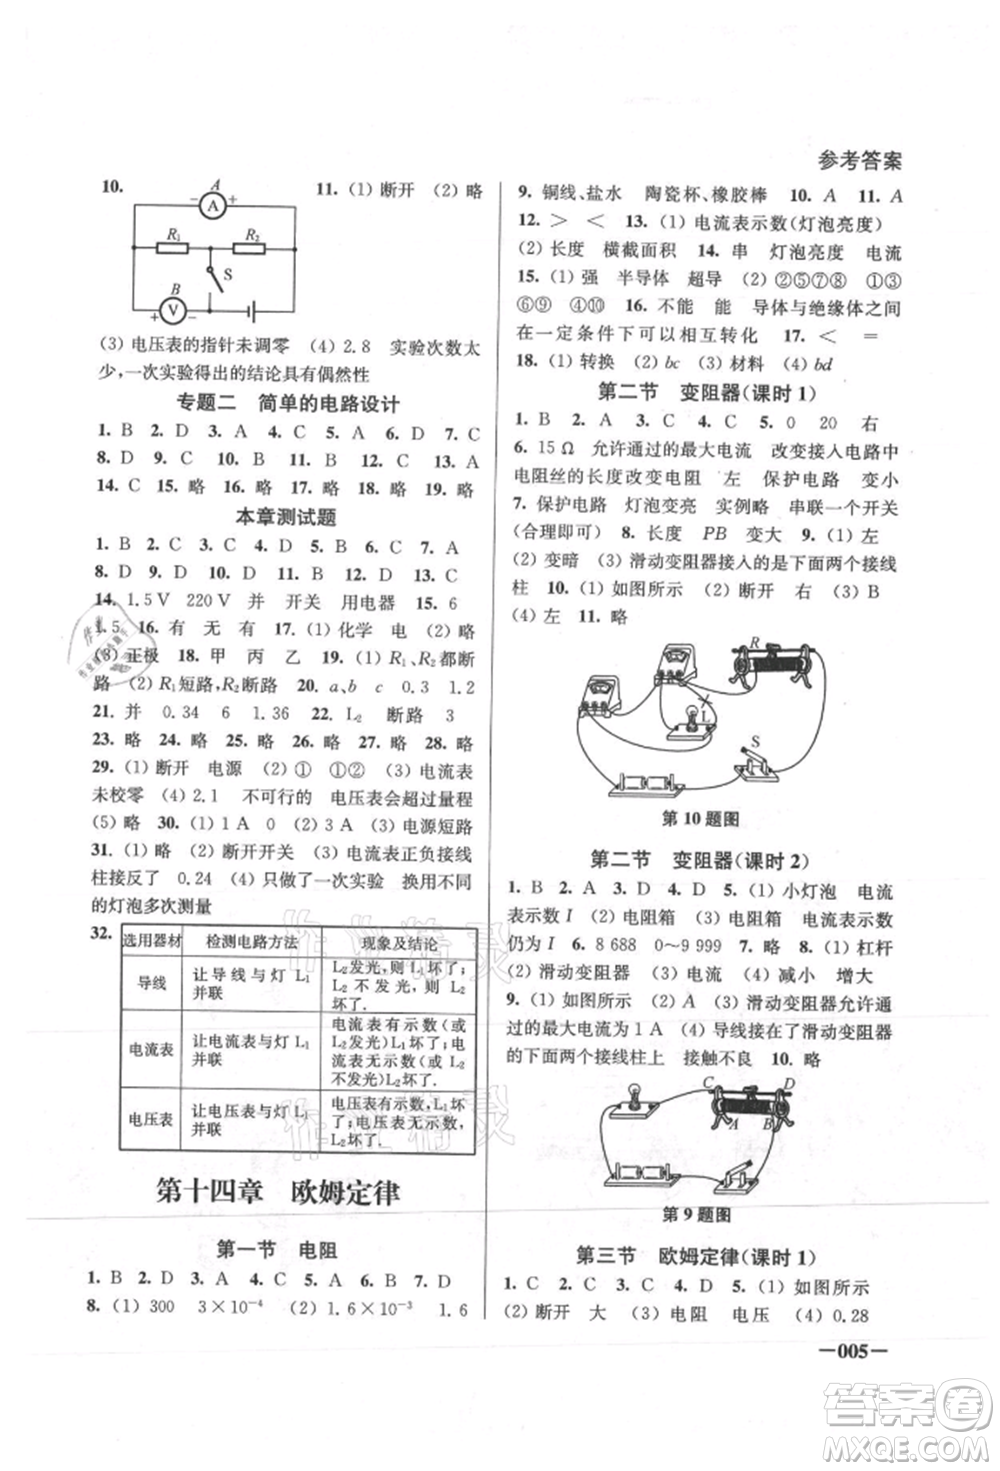 参考答案
10.
A
− A +
R₁ R₂
S
B
+ V −
11. (1) 断开 (2) 略
(3) 电压表的指针未调零 (4) 2.8 实验次数太
少,一次实验得出的结论具有偶然性
专题二 简单的电路设计
1. B 2. D 3. A 4. C 5. A 6. D 7. C
8. D 9. D 10. C 11. B 12. C 13. A
14. C 15. 略 16. 略 17. 略 18. 略 19. 略
本章测试题
1. B 2. C 3. B 4. C 5. D 6. C 7. A
8. D 9. D 10. D 11. C 12. D 13. C
14. 1.5 V 220 V 并 开关 用电器 15. 6
1.5 16. 有 无 有 17. (1) 化学 电 (2) 略
(3) 正极 18. 甲 丙 乙 19. (1) R₁、R₂都断
路 (2) R₁短路,R₂断路 20. a、b c 0.3 1.2
21. 并 0.34 6 1.36 22. L₂ 断路 3
23. 略 24. 略 25. 略 26. 略 27. 略 28. 略
29. (1) 断开 电源 (2) ① ① ② (3) 电流表
未校零 (4) 2.1 不可行的 电压表会超过量程
(5) 略 30. (1) 1 A 0 (2) 3 A (3) 电源短路
31. (1) 略 (2) 断开开关 (3) 电流表正负接线
柱接反了 0.24 (4) 只做了一次实验 换用不同
的灯泡多次测量
32.
选用器材 检测电路方法 现象及结论
导线 让导线与灯 L₁并联 L₂发光,则 L₁坏了;L₂不发光,则 L₂坏了.
电流表 让电流表与灯 L₁并联 电流表有示数(或 L₂发光)L₁坏了;电流表无示数(或 L₂不发光)L₂坏了.
电压表 让电压表与灯 L₁并联 电压表有示数,L₁坏了;电压表无示数,L₂坏了.
第十四章 欧姆定律
第一节 电阻
1. B 2. D 3. A 4. C 5. C 6. B 7. D
8. (1) 300 3×10⁻⁴ (2) 1.6×10⁻³ 1.6
9. 铜线、盐水 陶瓷杯、橡胶棒 10. A 11. A
12. > < 13. (1) 电流表示数(灯泡亮度)
(2) 长度 横截面积 14. 串 灯泡亮度 电流
15. (1) 强 半导体 超导 (2) ②⑤⑦⑧ ①③
⑥⑨ ④⑩ 16. 不能 能 导体与绝缘体之间
在一定条件下可以相互转化 17. < =
18. (1) 转换 (2) bc (3) 材料 (4) bd
第二节 变阻器(课时 1)
1. B 2. A 3. C 4. C 5. 0 20 右
6. 15 Ω 允许通过的最大电流 改变接入电路中
电阻丝的长度改变电阻 左 保护电路 变小
7. 保护电路 灯泡变亮 实例略 串联一个开关
(合理即可) 8. 长度 PB 变大 9. (1) 左
(2) 变暗 (3) 滑动变阻器接入的是下面两个接线
柱 10. (1) 如图所示 (2) 断开 右 (3) B
(4) 左 11. 略
R
L
S
第 10 题图
第二节 变阻器(课时 2)
1. B 2. A 3. D 4. D 5. (1) 小灯泡 电流
表示数 I (2) 电阻箱 (3) 电阻箱 电流表示数
仍为 I 6. 8 688 0~9 999 7. 略 8. (1) 杠杆
(2) 滑动变阻器 (3) 电流 (4) 减小 增大
9. (1) 如图所示 (2) A (3) 滑动变阻器允许通
过的最大电流为 1 A (4) 导线接在了滑动变阻器的
下面两个接线柱上 接触不良 10. 略
C D
A B
第 9 题图
第三节 欧姆定律(课时 1)
1. C 2. C 3. D 4. D 5. (1) 如图所示
(2) 断开 大 (3) 电阻 电压 (4) 0.28
—005—
作业精灵
作业精灵
答案圈
MXQE.COM